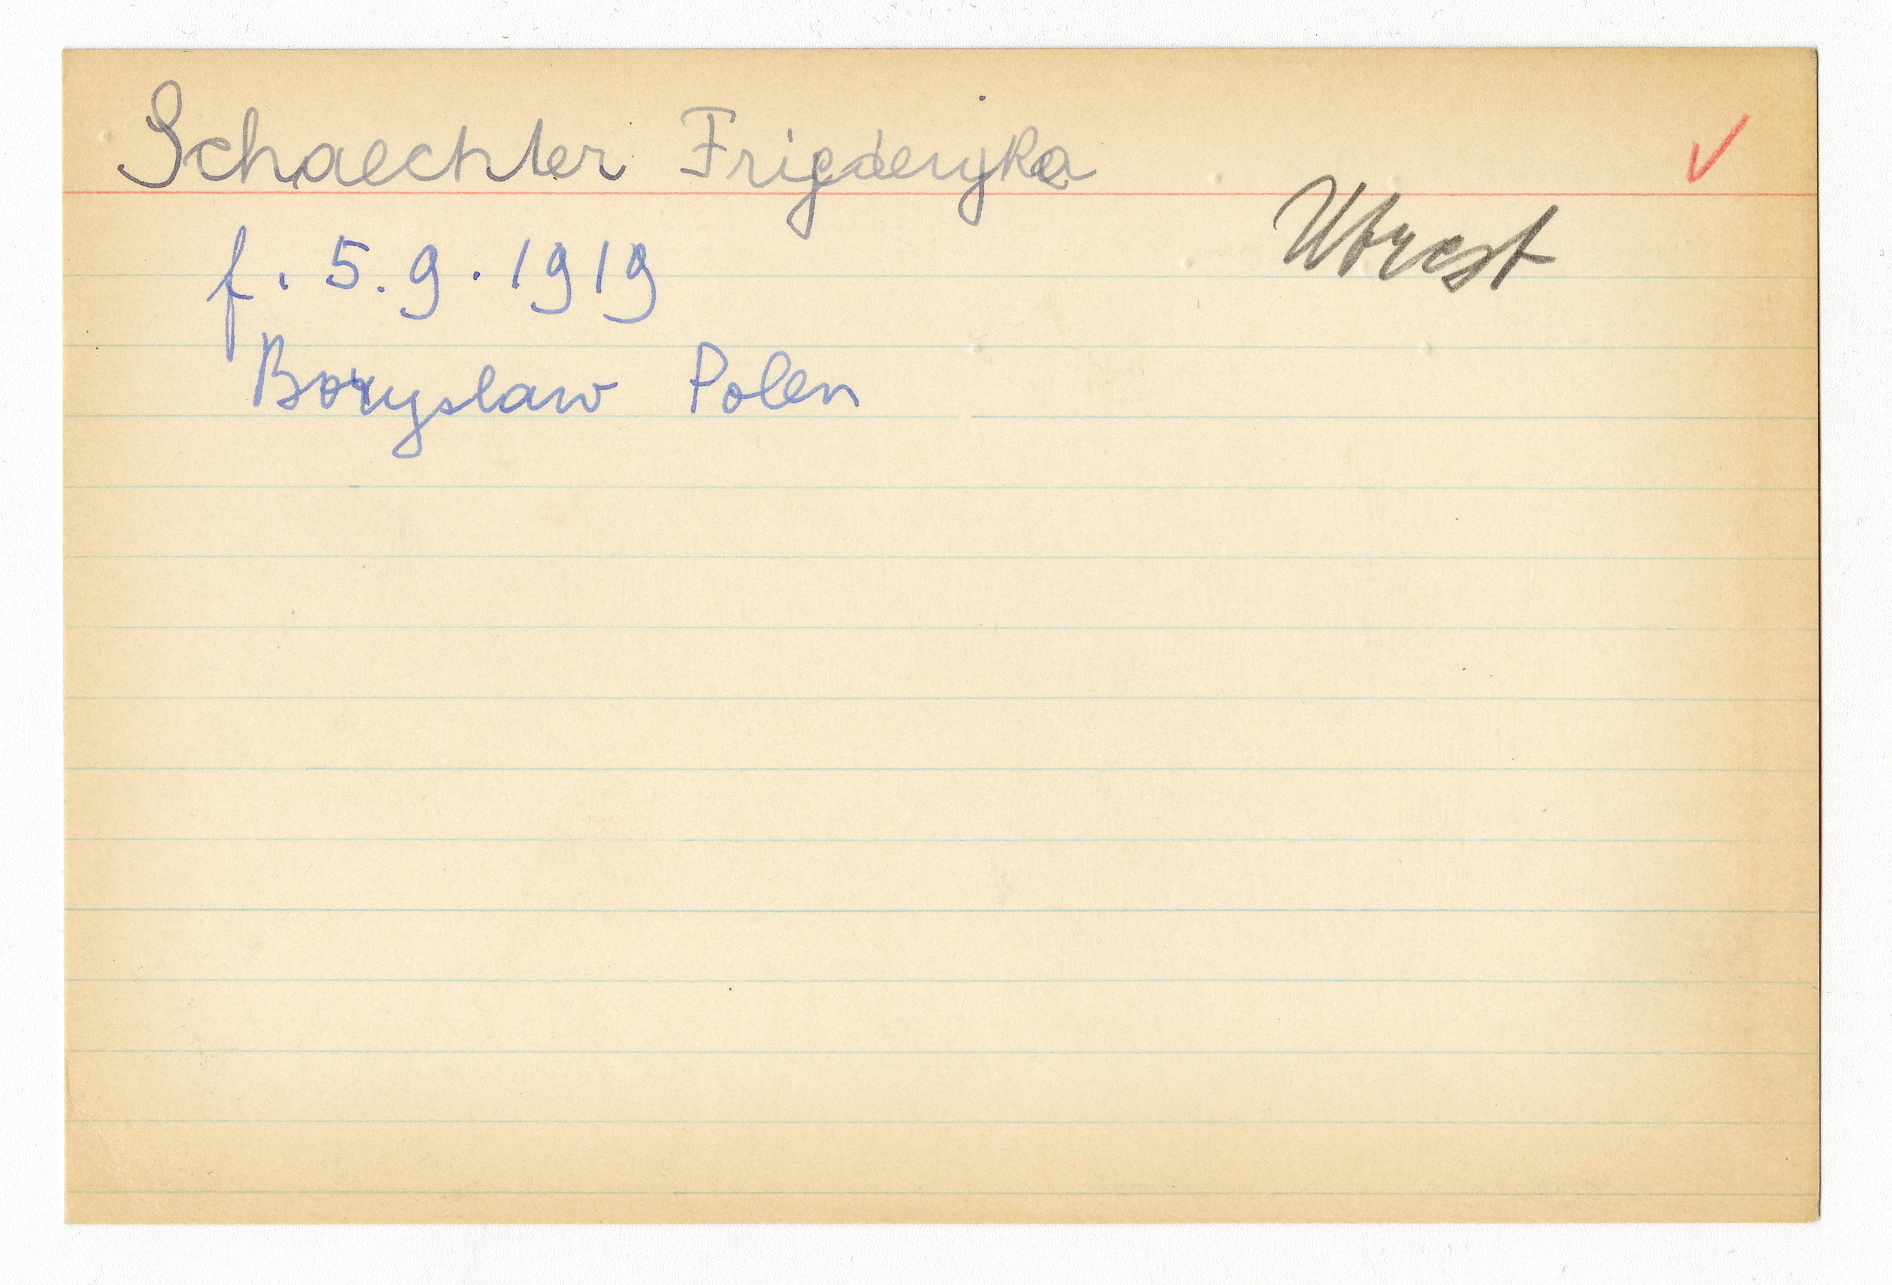 Schaechter Frigideryka
f. 5.9.1919
Boryslaw Polen